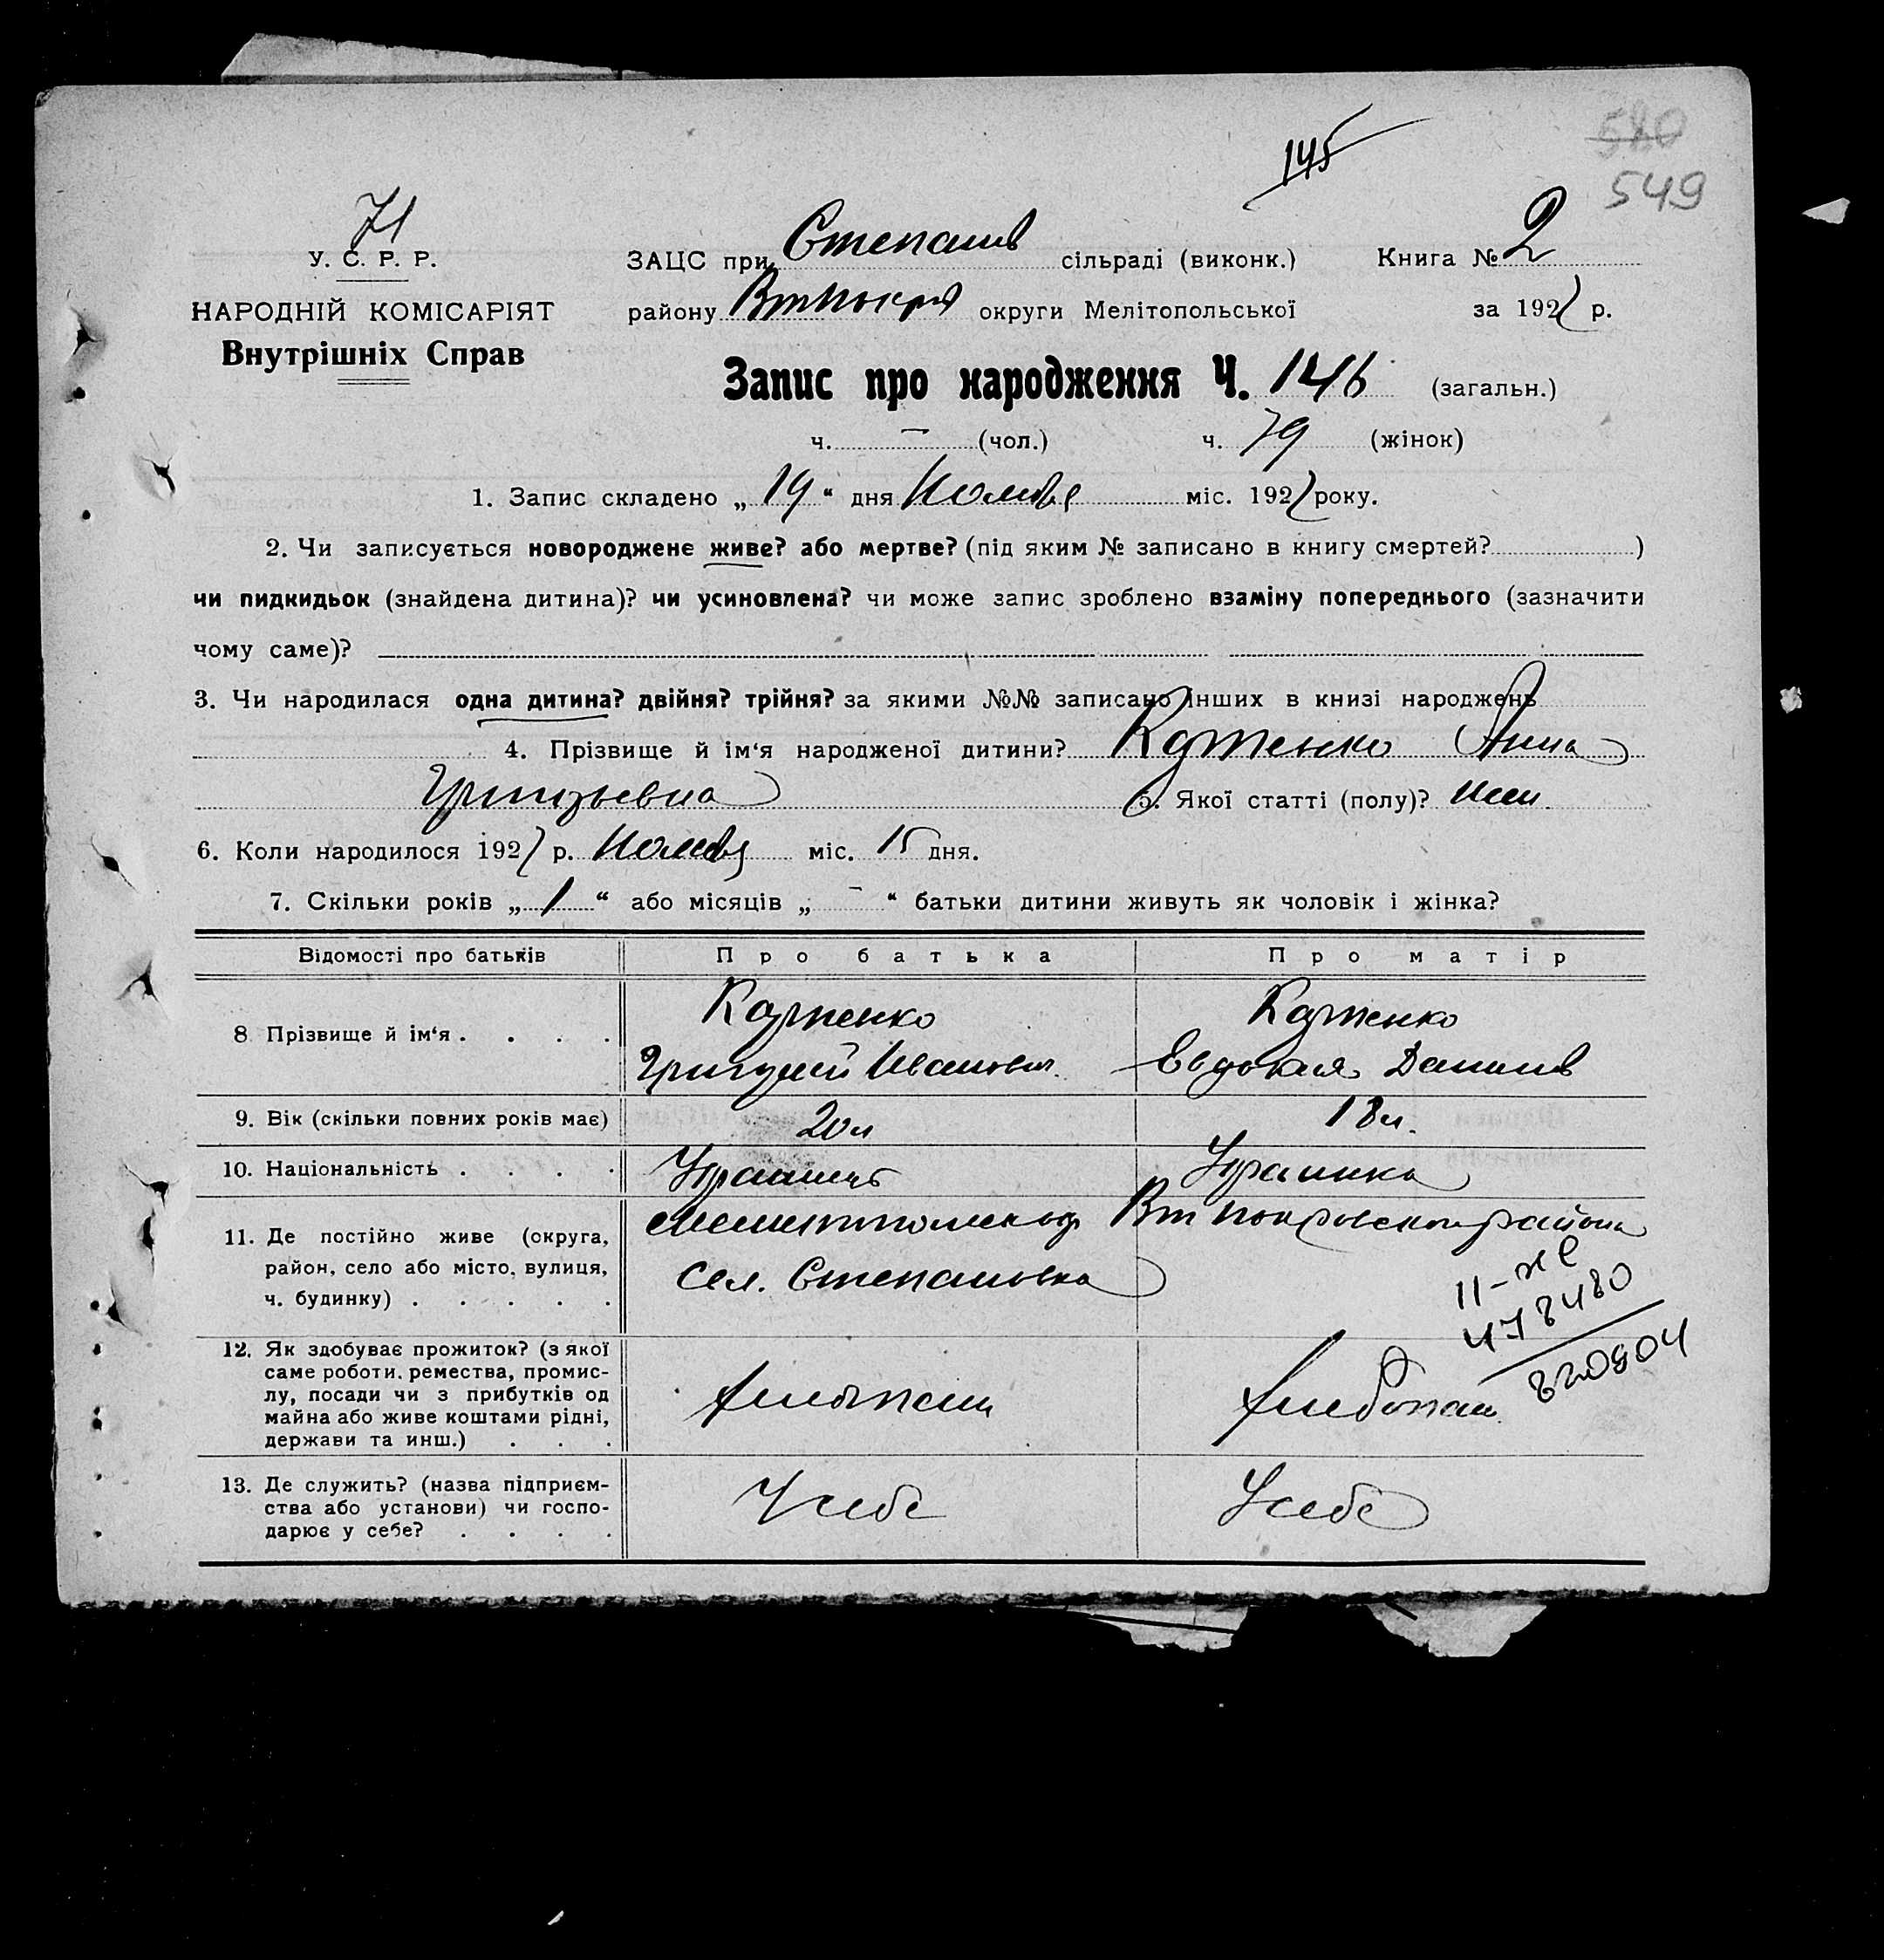 145
580
549
71
У. С. Р. Р.
НАРОДНІЙ КОМІСАРІЯТ
Внутрішніх Справ
ЗАЦС при Степанив сільраді (виконк.) Книга № 2
району округи Мелітопольської за 1927 р.
Запис про народження Ч. 146 (загальн.)
ч. – (чол.) ч. 79 (жінок)
1. Запис складено „ 19 “ дня міс. 1927 року.
2. Чи записується новороджене живе? або мертве? (під яким № записано в книгу смертей? )
чи пидкидьок (знайдена дитина)? чи усиновлена? чи може запис зроблено взаміну попереднього (зазначити
чому саме)?
3. Чи народилася одна дитина? двійня? трійня? за якими №№ записано інших в книзі народжень
4. Прізвище й ім‘я народженої дитини? Анна
Григорьевна 5. Якої статті (полу)? жен.
6. Коли народилося 1927 р. міс. 15 дня.
7. Скільки років „ 1 “ або місяців „ – “ батьки дитини живуть як чоловік і жінка?
Відомості про батьків Про батька Про матір
8 Прізвище й ім‘я . . . .
Григорий Иванович Евдокия Данилов
9. Вік (скільки повних років має) 20 л 18 л.
10. Національність . . . . Украинец Украинка
11. Де постійно живе (округа,
район, село або місто, вулиця,
ч. будинку) . . . . .
Мелитопольск окр Вт Покровского района
сел. Степановка
11-ЖС
478480
820804
12. Як здобуває прожиток? (з якої
саме роботи, ремества, промис-
лу, посади чи з прибутків од
майна або живе коштами рідні,
держави та инш.) . . .
хлебопаш хлебопаш.
13. Де служить? (назва підприєм-
ства або установи) чи госпо-
дарює у себе? . . . .
У себе У себе